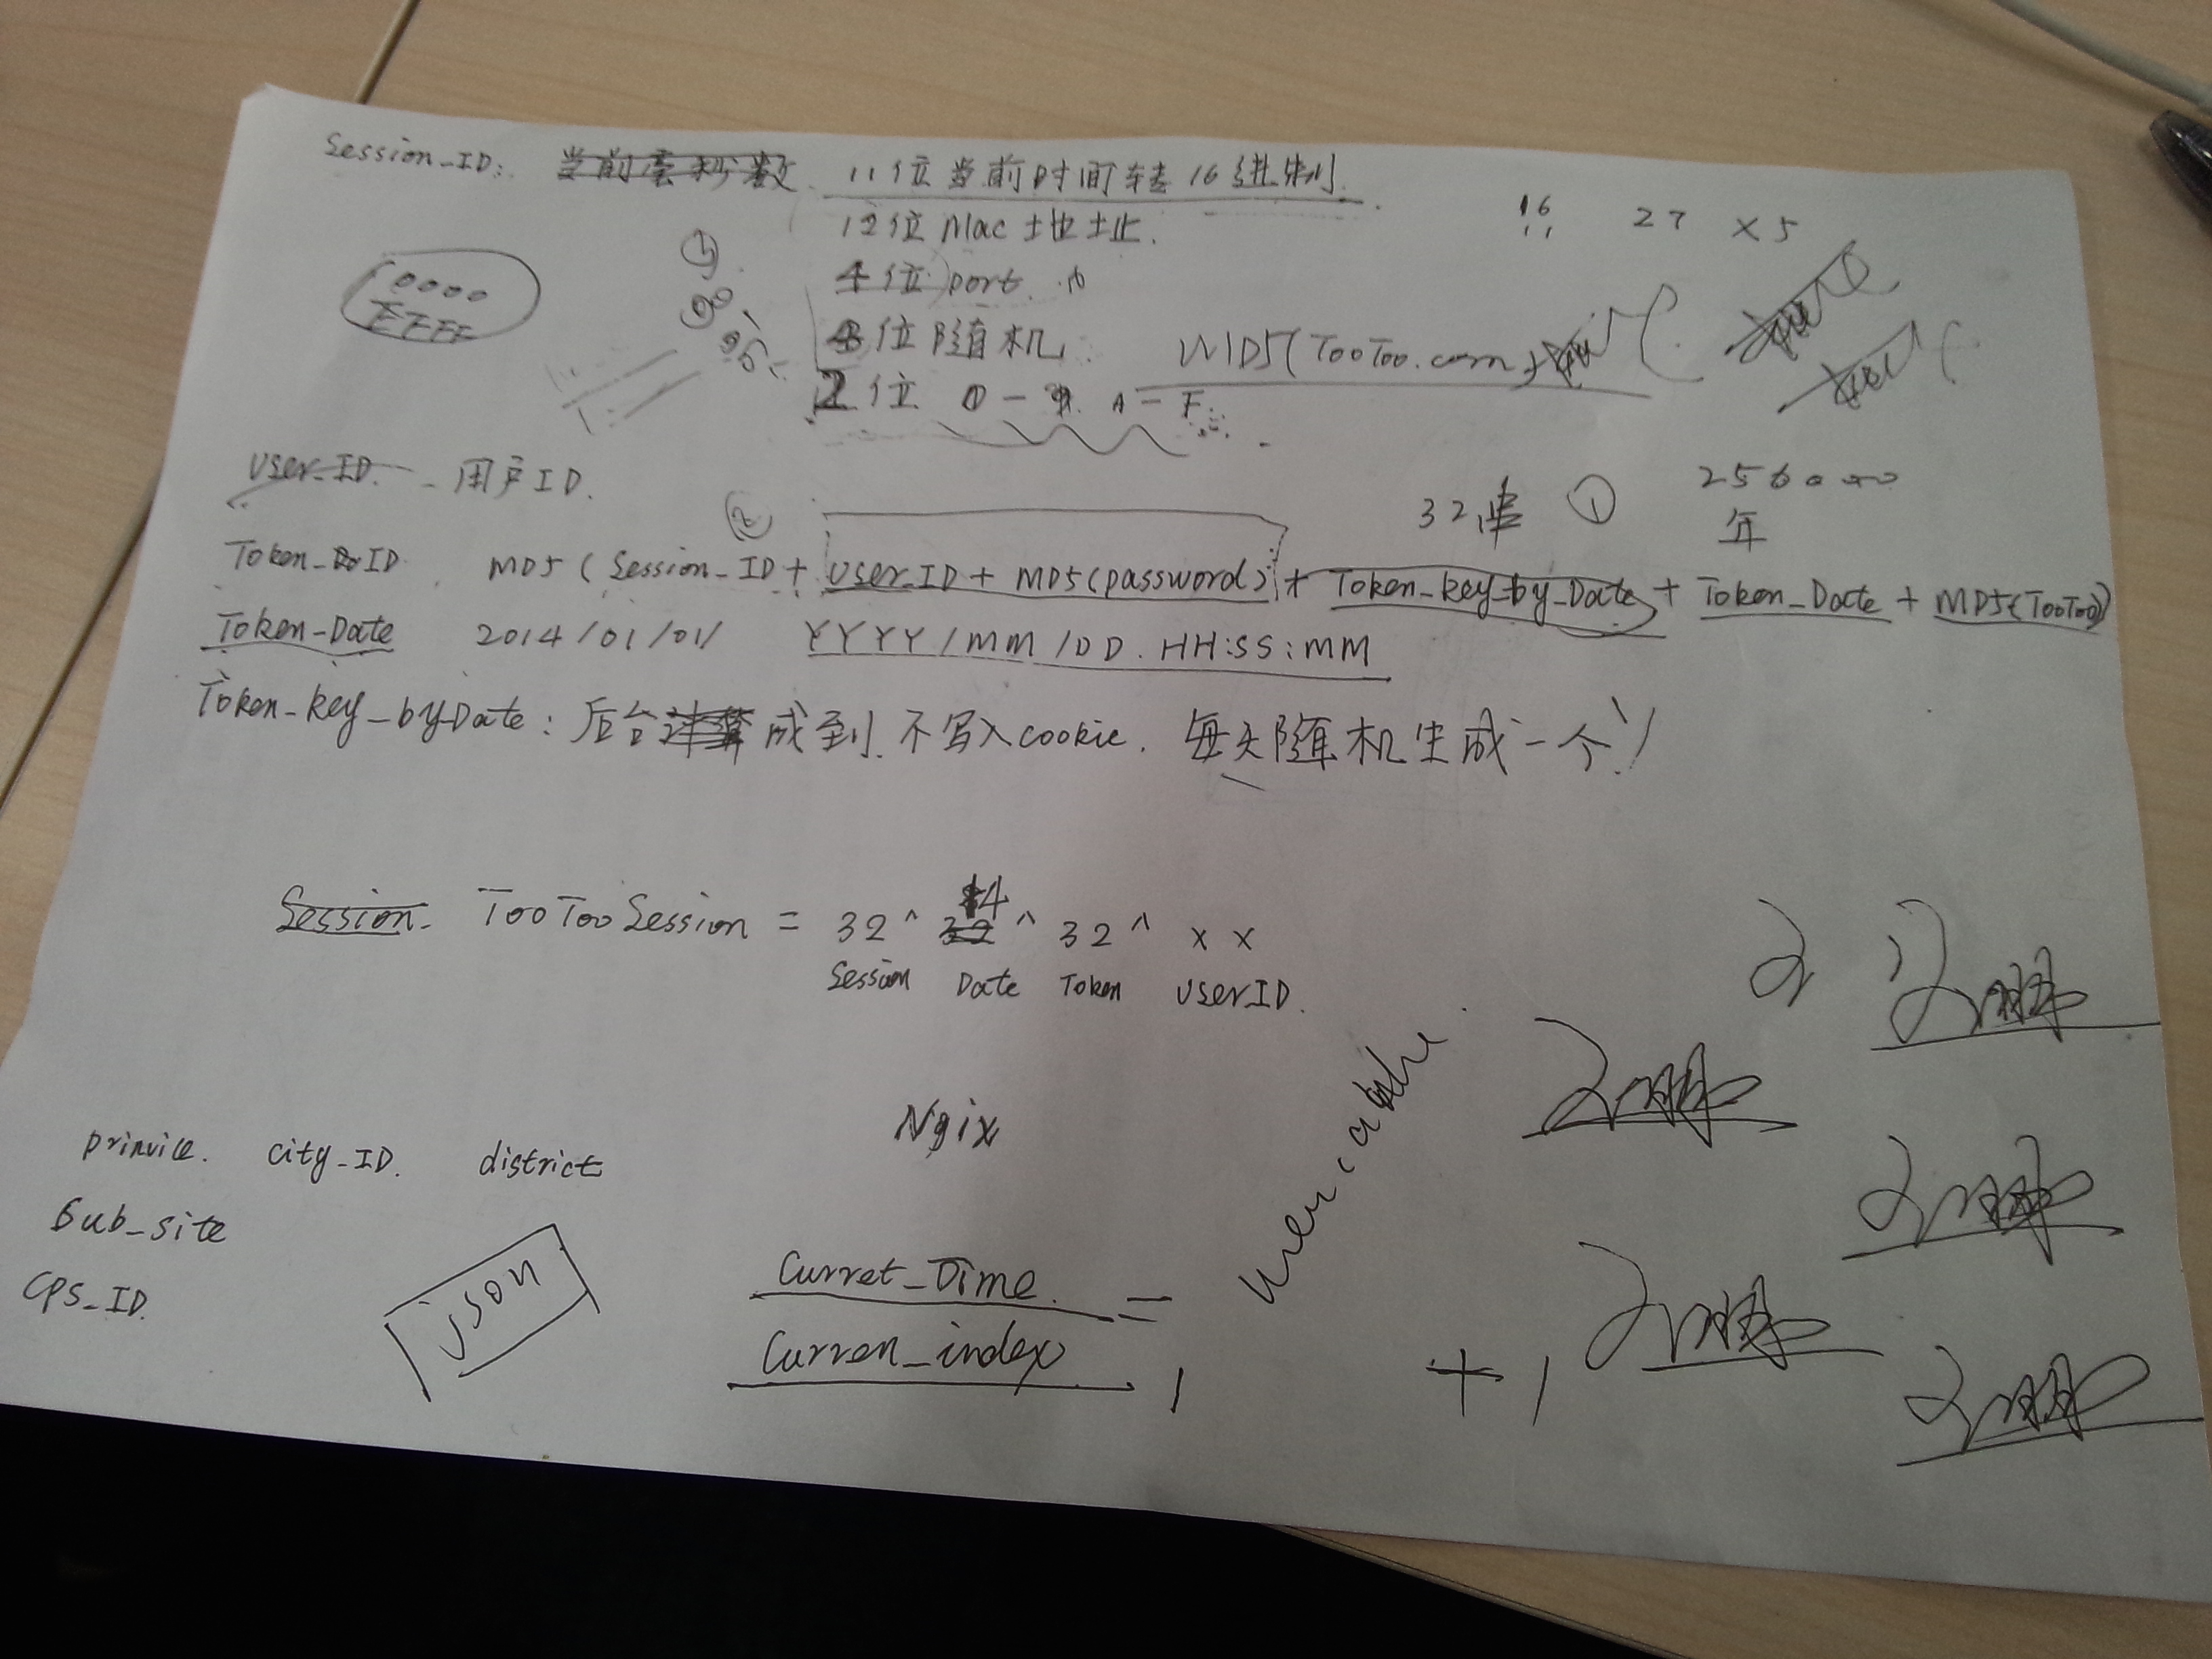 Session_ID: 当前毫秒数 11位当前时间转16进制.
12位Mac地址.
16 27 x5
4位port.
0000
FFFF
位随机 MD5(TooToo.com+
2位 0-9 A-F
User_ID 用户ID.
32串 ① 256000
年
②
Token_ID MD5(Session_ID+User_ID+MD5(password)+Token_key_by_Date+Token_Date+MD5(TooToo))
Token-Date 2014/01/01 YYYY/MM/DD. HH:SS:MM
Token_key_by_Date: 后台计算成到.不写入cookie. 每天随机生成一个
14
Session. TooTooSession = 32^32^32^xx
Session Date Token UserID.
Ngix
prinvice. city_ID. district
Sub_site
CPS_ID.
json
Curret_Time. =
Curren_index, +1